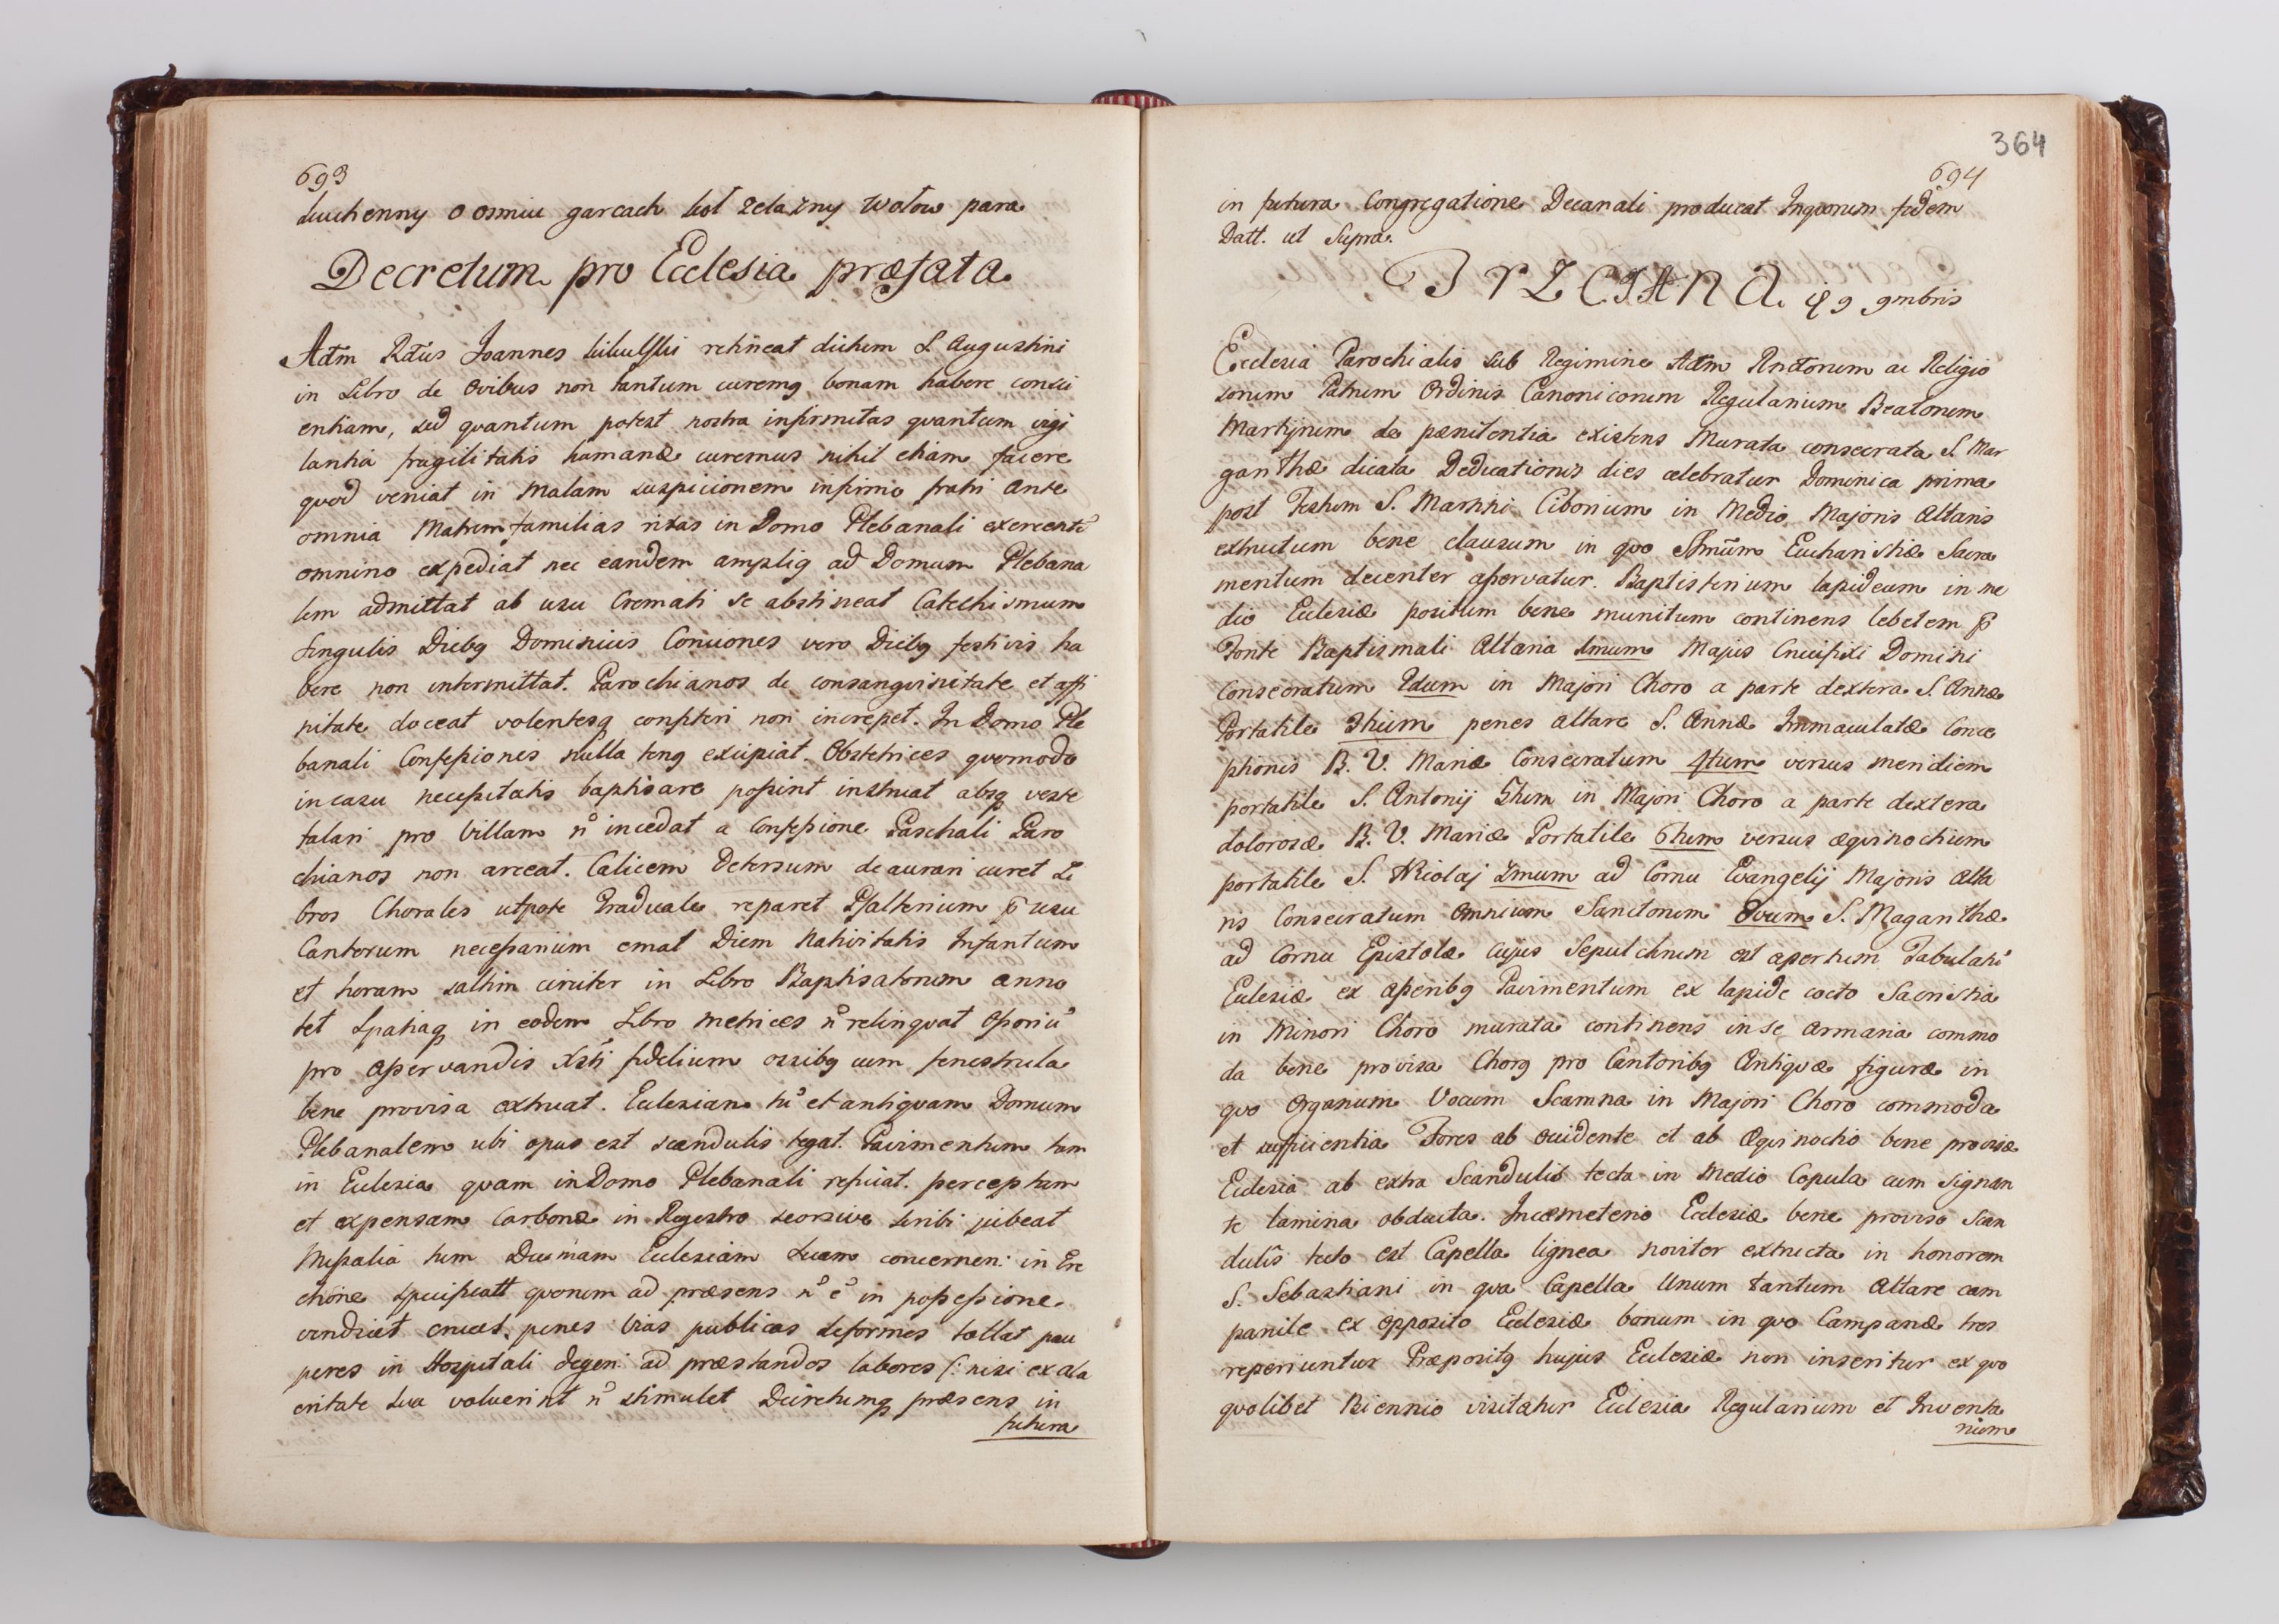 693
kuchenny o osmiu garcach koł zelazny wołow para
Decretum pro Ecclesia præfata
Adm Rdus Joannes retineat dictum S. Augustini
in Libro de Ovibus non tantum curemq bonam habere consci
entiam, sed quantum potest nostra infirmitas quantum vigi
lantia fragilitatis humanæ curemus nihil etiam facere
quod veniat in malam suspicionem infirmo fratri Ante
omnia Matrem familias in Domo Plebanali
omnino expediat nec eandem ampliq ad Domum Plebana
lem admittat ab usu Cremati se abstineat Catechismum
singulis Diebq Dominicis Conciones vero Diebq festivis ha
bere non intermittat. Parochianos de consangvinitate et affi
nitate doceat volentesq confiteri non increpet. In Domo Ple
banali Confessiones nulla tenq excipiat. Obstetrices quomodo
in casu necessitatis baptisare possint instruat absq veste
talari pro Villam n̄ incedat a Confessione Paschali Paro
chianos non arceat. Calicem detersum deaurari curet Li
bros Chorales utpote Graduale reparet Psalterium p̄ usu
Cantorum necessarium emat Diem Nativitatis Infantum
et horam saltim circiter in Libro Baptisatorum anno
tet Spatiaq in eodem Libro metrices n̄ relinqvat
pro asservandis Xsti fidelium ossibq cum fenestrula
bene provisa extruat. Ecclesiam tū et antiqvam Domum
Plebanalem ubi opus est scandulis tegat. Pavimentum tam
in Ecclesia qvam in Domo Plebanali reficiat. perceptam
et expensam Carbonæ in Regestro seorsive scribi jubeat
Missalia tum Decimam Ecclesiam suam concernen: in Ere
ctione specificatt quorum ad præsens n̄ ē in possessione
vendicet cruces penes vias publicas deformes tollat pau
peres in Hospitali degen: ad præstandos labores /: nisi ex ala
critate sua voluerint n̄ stimulet Decretumq præsens in
futura
364
694
in futura Congregatione Decanali producat Inqvorum fidem
Datt. ut Supra.
TRZCIANA 9 9mbris
Ecclesia Parochialis sub Regimine Adm Rndorum ac Religio
sorum Patrum Ordinis Canonicorum Regularium Beatorum
Martyrum de pænitentia existens Murata consecrata S. Mar
garithæ dicata Dedicationis dies celebratur Dominica prima
post Festum S. Martini Cibonium in Medio Majoris Altaris
extructum bene clausum in qvo SSmūm Eucharistiæ Sacra
mentum decenter asservatur. Baptisterium lapideum in me
dio Ecclesiæ positum bene munitum continens lebetem p̄
Fonte Baptismali Altaria 1mum Majus Crucifixi Domini
Consecratum 2dum in Majori Choro a parte dextera S. Annæ
Portatile 3tium penes altare S. Annæ Immaculatæ Conce
ptionis B. V. Mariæ Consecratum 4tum versus meridiem
portatile S. Antonij 5tum in Majori Choro a parte dextera
dolorosæ B. V. Mariæ Portatile 6tum versus æqvinoctium
portatile S. Nicolaj 7mum ad Cornu Evangelij Majoris Alta
ris Consecratum Omnium Sanctorum 8vum S. Magarithæ
ad Cornu Epistolæ cujus Sepulchrum est apertum Tabulati
Ecclesiæ ex asseribq Pavimentum ex lapide cocto Sacristia
in Minori Choro murata continens in se armaria commo
da bene provisa Chorq pro Cantoribq Antiqvæ figuræ in
qvo Organum Vocum Scamna in Majori Choro commoda
et sufficientia Fores ab occidente et ab Æqvinoctio bene provisæ
Ecclesia ab extra Scandulis tecta in Medio Copula cum signan
te lamina obducta. In cæmeterio Ecclesiæ bene proviso scan
dulis tecto est Capella lignea noviter extructa in honorem
S. Sebastiani in qva Capella Unum tantum Altare cam
panile ex opposito Ecclesiæ bonum in qvo Campanæ tres
reperiuntur Præpositq hujus Ecclesiæ non inseritur ex qvo
qvolibet Biennio visitatur Ecclesia Regularium et Inventa
rium